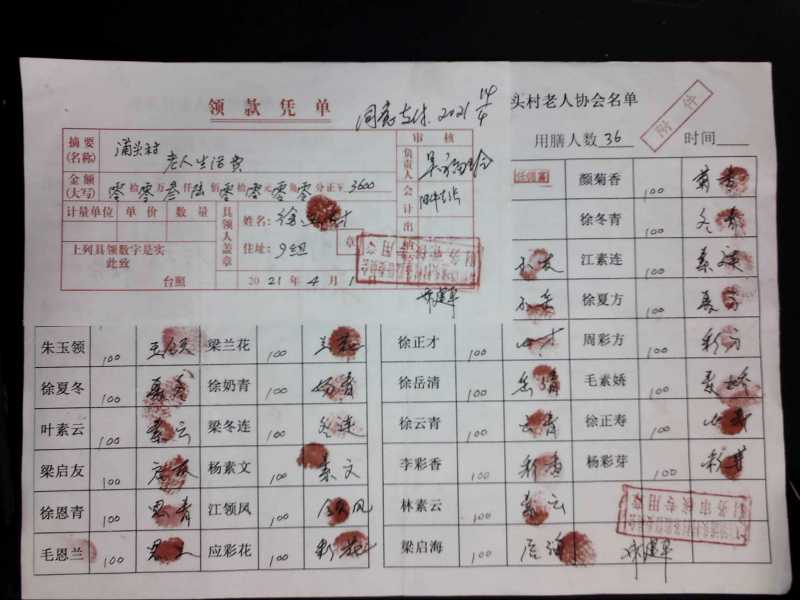 领款凭单
同意支付 2021 14/4
头村老人协会名单
附件
用膳人数36 时间
摘要(名称) 蒲头村老人生活费
审核
负责人
金额(大写) 零拾零万叁仟陆佰零拾零元零角零分正¥ 3600
会计
出纳
计量单位 单价 数量
具领人盖章
姓名:
住址:9组
章
上列具领数字是实
此致
台照
2021年4月1日
颜菊香 100 菊香
徐冬青 100 冬香
江素连 100 素连
徐夏方 100 夏方
朱玉领 100 玉领 梁兰花 100 兰花 徐正才 100 周彩方 100 彩方
徐夏冬 100 夏冬 徐奶青 100 奶青 徐岳清 100 岳清 毛素娇 100 素娇
叶素云 100 素云 梁冬连 100 冬连 徐云青 100 云青 徐正寿 100
梁启友 100 启友 杨素文 100 素文 李彩香 100 彩香 杨彩芽 100 彩芽
徐恩青 100 恩青 江领凤 100 领凤 林素云 100 素云
毛恩兰 100 恩兰 应彩花 100 彩花 梁启海 100 启海
财务审核专用章
财务审核专用章